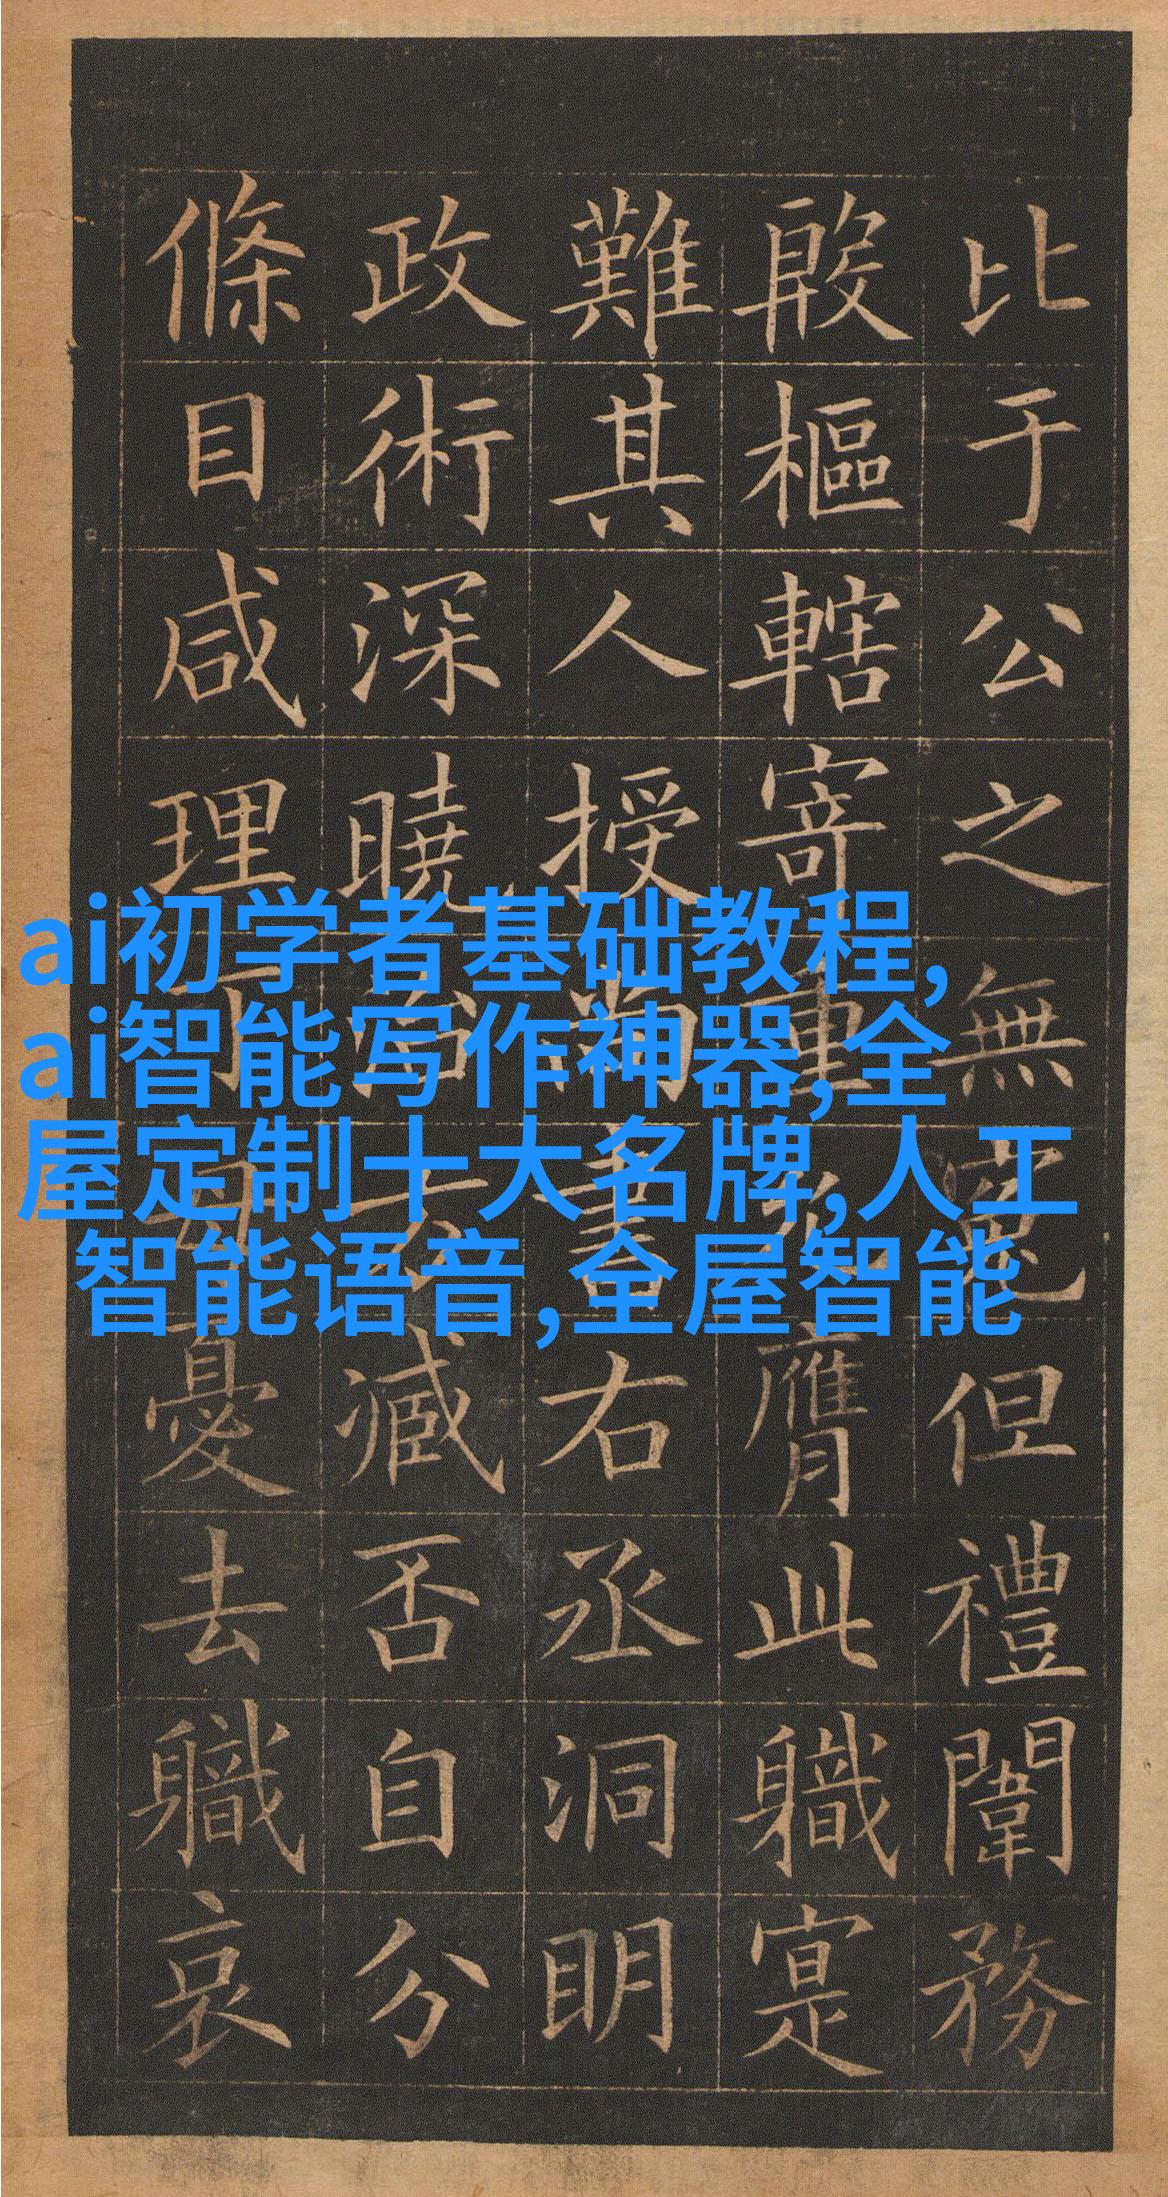 ai初学者基础教程,
ai智能写作神器,全
屋定制十大名牌,人工
智能语音,全屋智能
比于公之無冤但禮闈務
殷樞轄寄重允膺此職寔
難其人授尚書右丞洞明
政術深曉治方臧否自分
條目咸理丁母憂去職哀